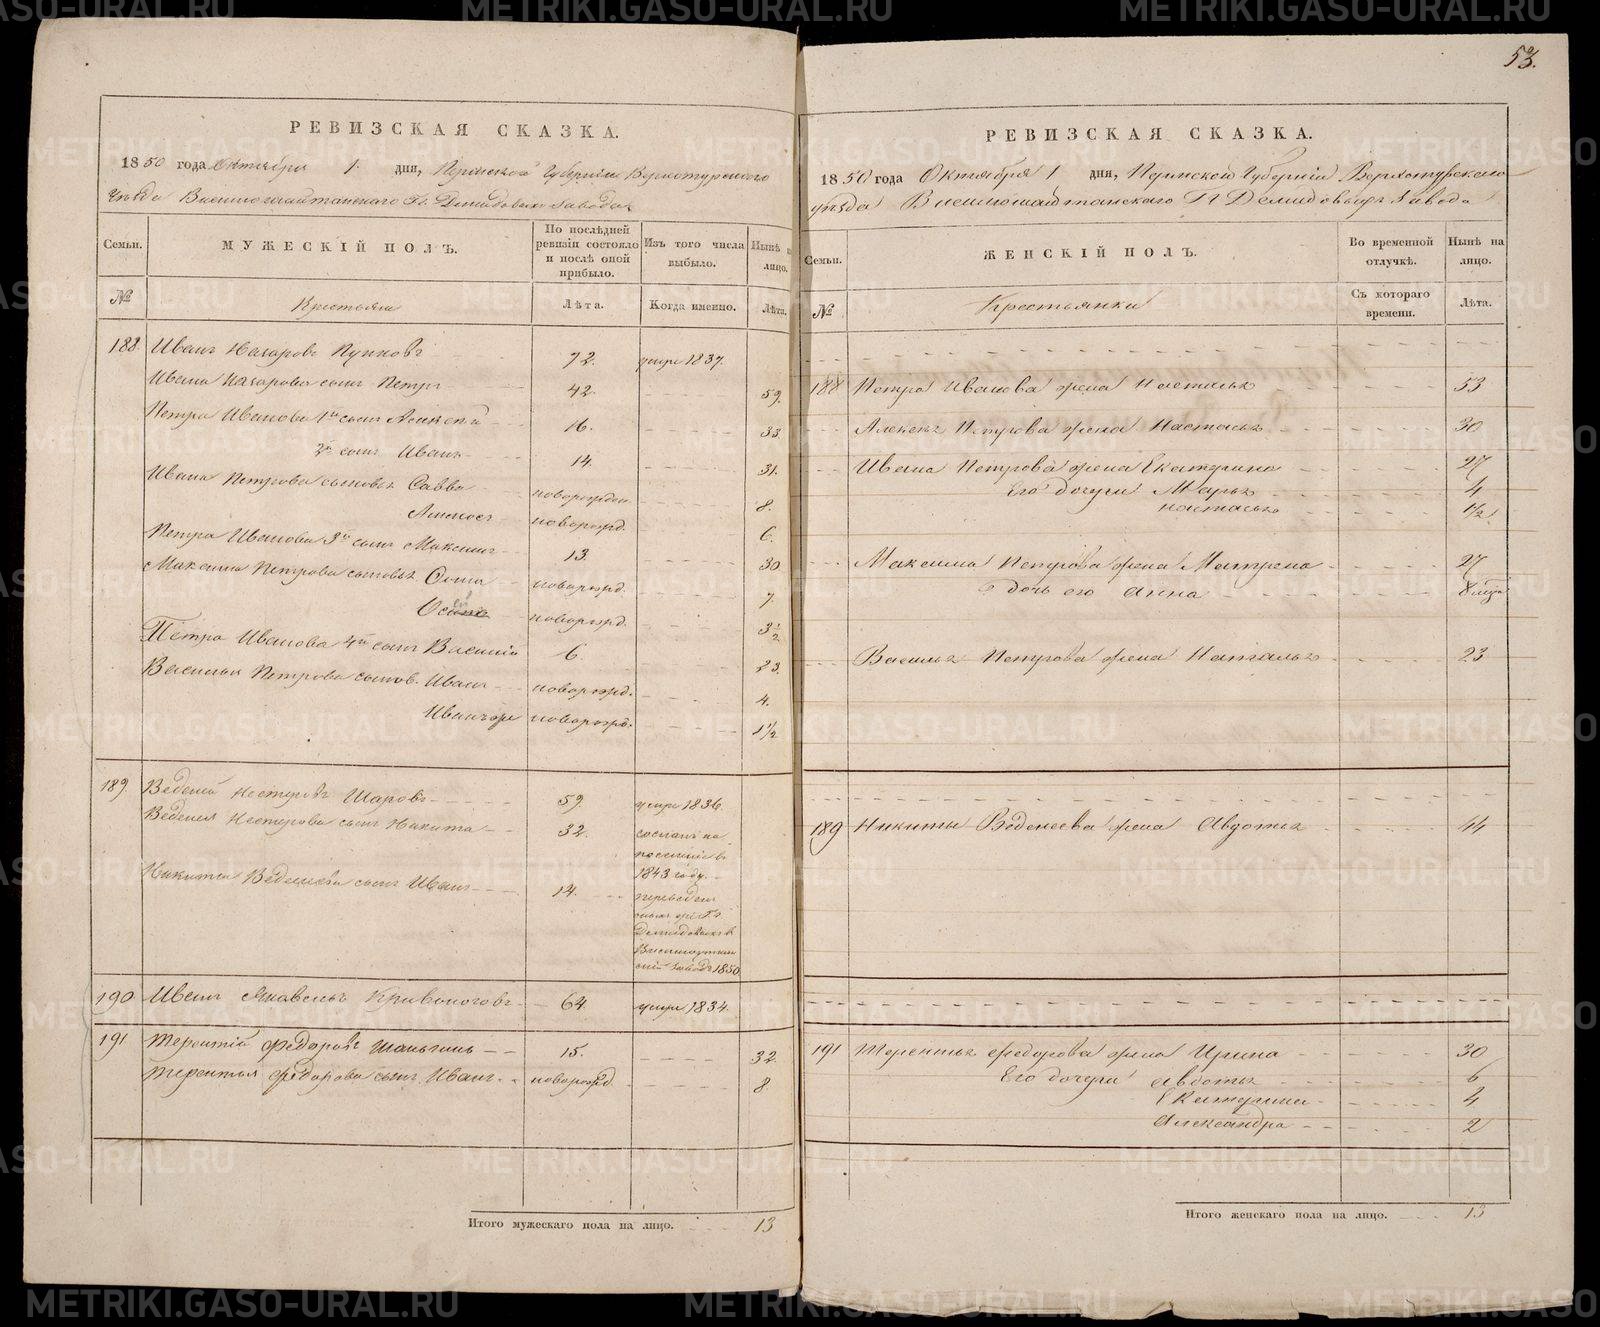 53.
РЕВИЗСКАЯ СКАЗКА.
1850 года Октября 1. дня, Пермской Губерніи Верхотурскаго
уѣзда Висимошайтанскаго Гг. Демидовыхъ завода
Семьи.
МУЖЕСКІЙ ПОЛЪ.
По послѣдней ревизіи состояло и послѣ оной прибыло.
Изъ того числа выбыло.
Нынѣ на лицо.
№
Крестьяне
Лѣта.
Когда именно.
Лѣта.
188. Иванъ Назаровъ 72. умре 1837.
Ивана Назарова сынъ Петръ 42. 59.
Петра Иванова 1й сынъ Алексѣй 16. 33.
2й сынъ Иванъ 14. 31.
Ивана Петрова сыновья Савва новорожден. 8.
новорожд. 6.
Петра Иванова 3й сынъ Максимъ 13. 30
Максима Петрова сыновья новорожд. 7.
новорожд. 3 1/2
Петра Иванова 4й сынъ Василій 6 23.
Василья Петрова сынов. Иванъ новорожд. 4.
Иванъ же новорожд. 1 1/2
189. Веденей Нестеровъ Шаровъ 59. умре 1836.
Веденея Нестерова сынъ Никита 32. сосланъ на
поселеніе въ
1843 году.
Никиты Веденеева сынъ Иванъ 14. переведенъ
Демидовыхъ въ
заводъ 1850
190 Иванъ Яковлевъ Кривоноговъ 64. умре 1834.
191 Терентій Федоровъ 15. 32
Терентья Федорова сынъ Иванъ новорожд. 8
Итого мужескаго пола на лицо. 13
РЕВИЗСКАЯ СКАЗКА.
1850 года Октября 1 дня, Пермской Губерніи Верхотурскаго
уѣзда Висимошайтанскаго Гг Демидовыхъ завода
Семьи.
ЖЕНСКІЙ ПОЛЪ.
Во временной отлучкѣ.
Нынѣ на лицо.
№
Крестьянки
Съ котораго времени.
Лѣта.
188 Петра Иванова жена Настасья 53
Алексѣя Петрова жена Настасья 30
Ивана Петрова жена Екатерина 27
Его дочери Марья 4
Настасья 1 1/2
Максима Петрова жена Матрена 27
дочь его Анна 8 мѣс
Василья Петрова жена Наталья 23
189 Никиты Веденеева жена Авдотья 44
191 Терентья Федорова жена Ирина 30
Его дочери Авдотья 6
Екатерина 4
Александра 2
Итого женскаго пола на лицо. 13
METRIKI.GASO-URAL.RU